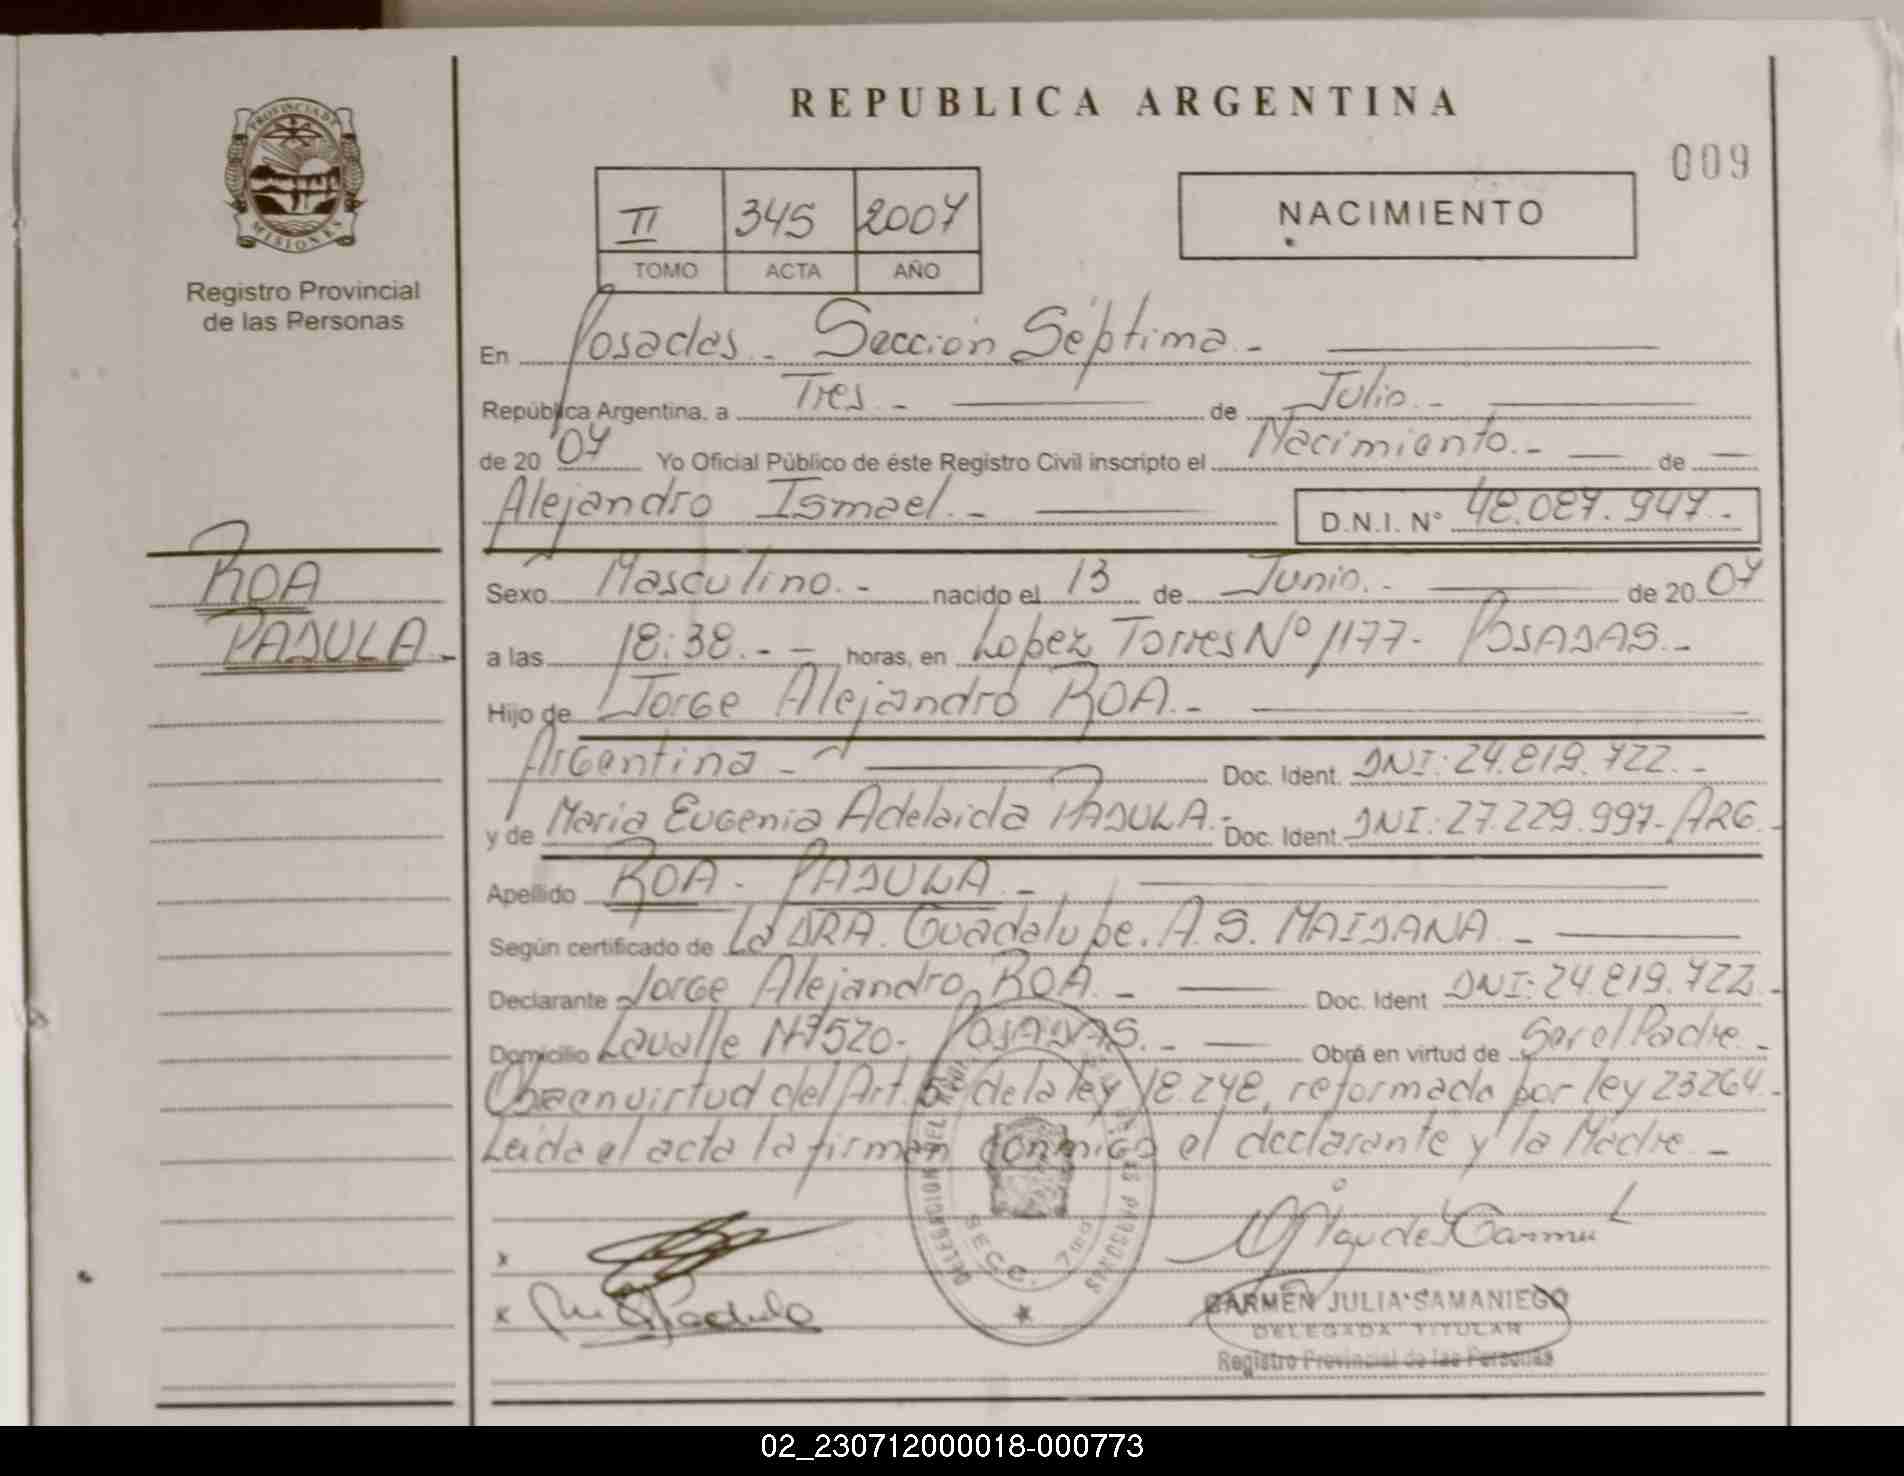 REPUBLICA ARGENTINA
009
PROVINCIA DE
MISIONES
Registro Provincial
de las Personas
II 345 2007
TOMO ACTA AÑO
NACIMIENTO
En Posadas - Sección Séptima. -
República Argentina, a Tres. - de Julio. -
de 20 07 Yo Oficial Público de éste Registro Civil inscripto el Nacimiento. - de
Alejandro Ismael. - D.N.I. N° 48.087.947. -
ROA
PADULA. -
Sexo Masculino. - nacido el 13 de Junio. - de 20 07
a las 18:38. - - horas, en Lopez Torres Nº 1177- POSADAS. -
Hijo de Jorge Alejandro ROA. -
Argentina - Doc. Ident. DNI: 24.819.722. -
y de Maria Eugenia Adelaida PADULA. - Doc. Ident. DNI: 27.229.997- ARG. -
Apellido ROA - PADULA. -
Según certificado de La DRA. Guadalupe. A. S. MAIDANA. -
Declarante Jorge Alejandro ROA. - Doc. Ident DNI: 24.819.722. -
Domicilio Lavalle Nº 520- POSADAS. - Obra en virtud de Ser el Padre. -
Obra en virtud del Art. 5º de la ley 18.248, reformada por ley 23264. -
Leida el acta la firman conmigo el declarante y la Madre. -
DELEGACION DEL DE LAS PERSONAS
SECC. 7ma
x
x Padula
CARMEN JULIA SAMANIEGO
DELEGADA TITULAR
Registro Provincial de las Personas
02_230712000018-000773